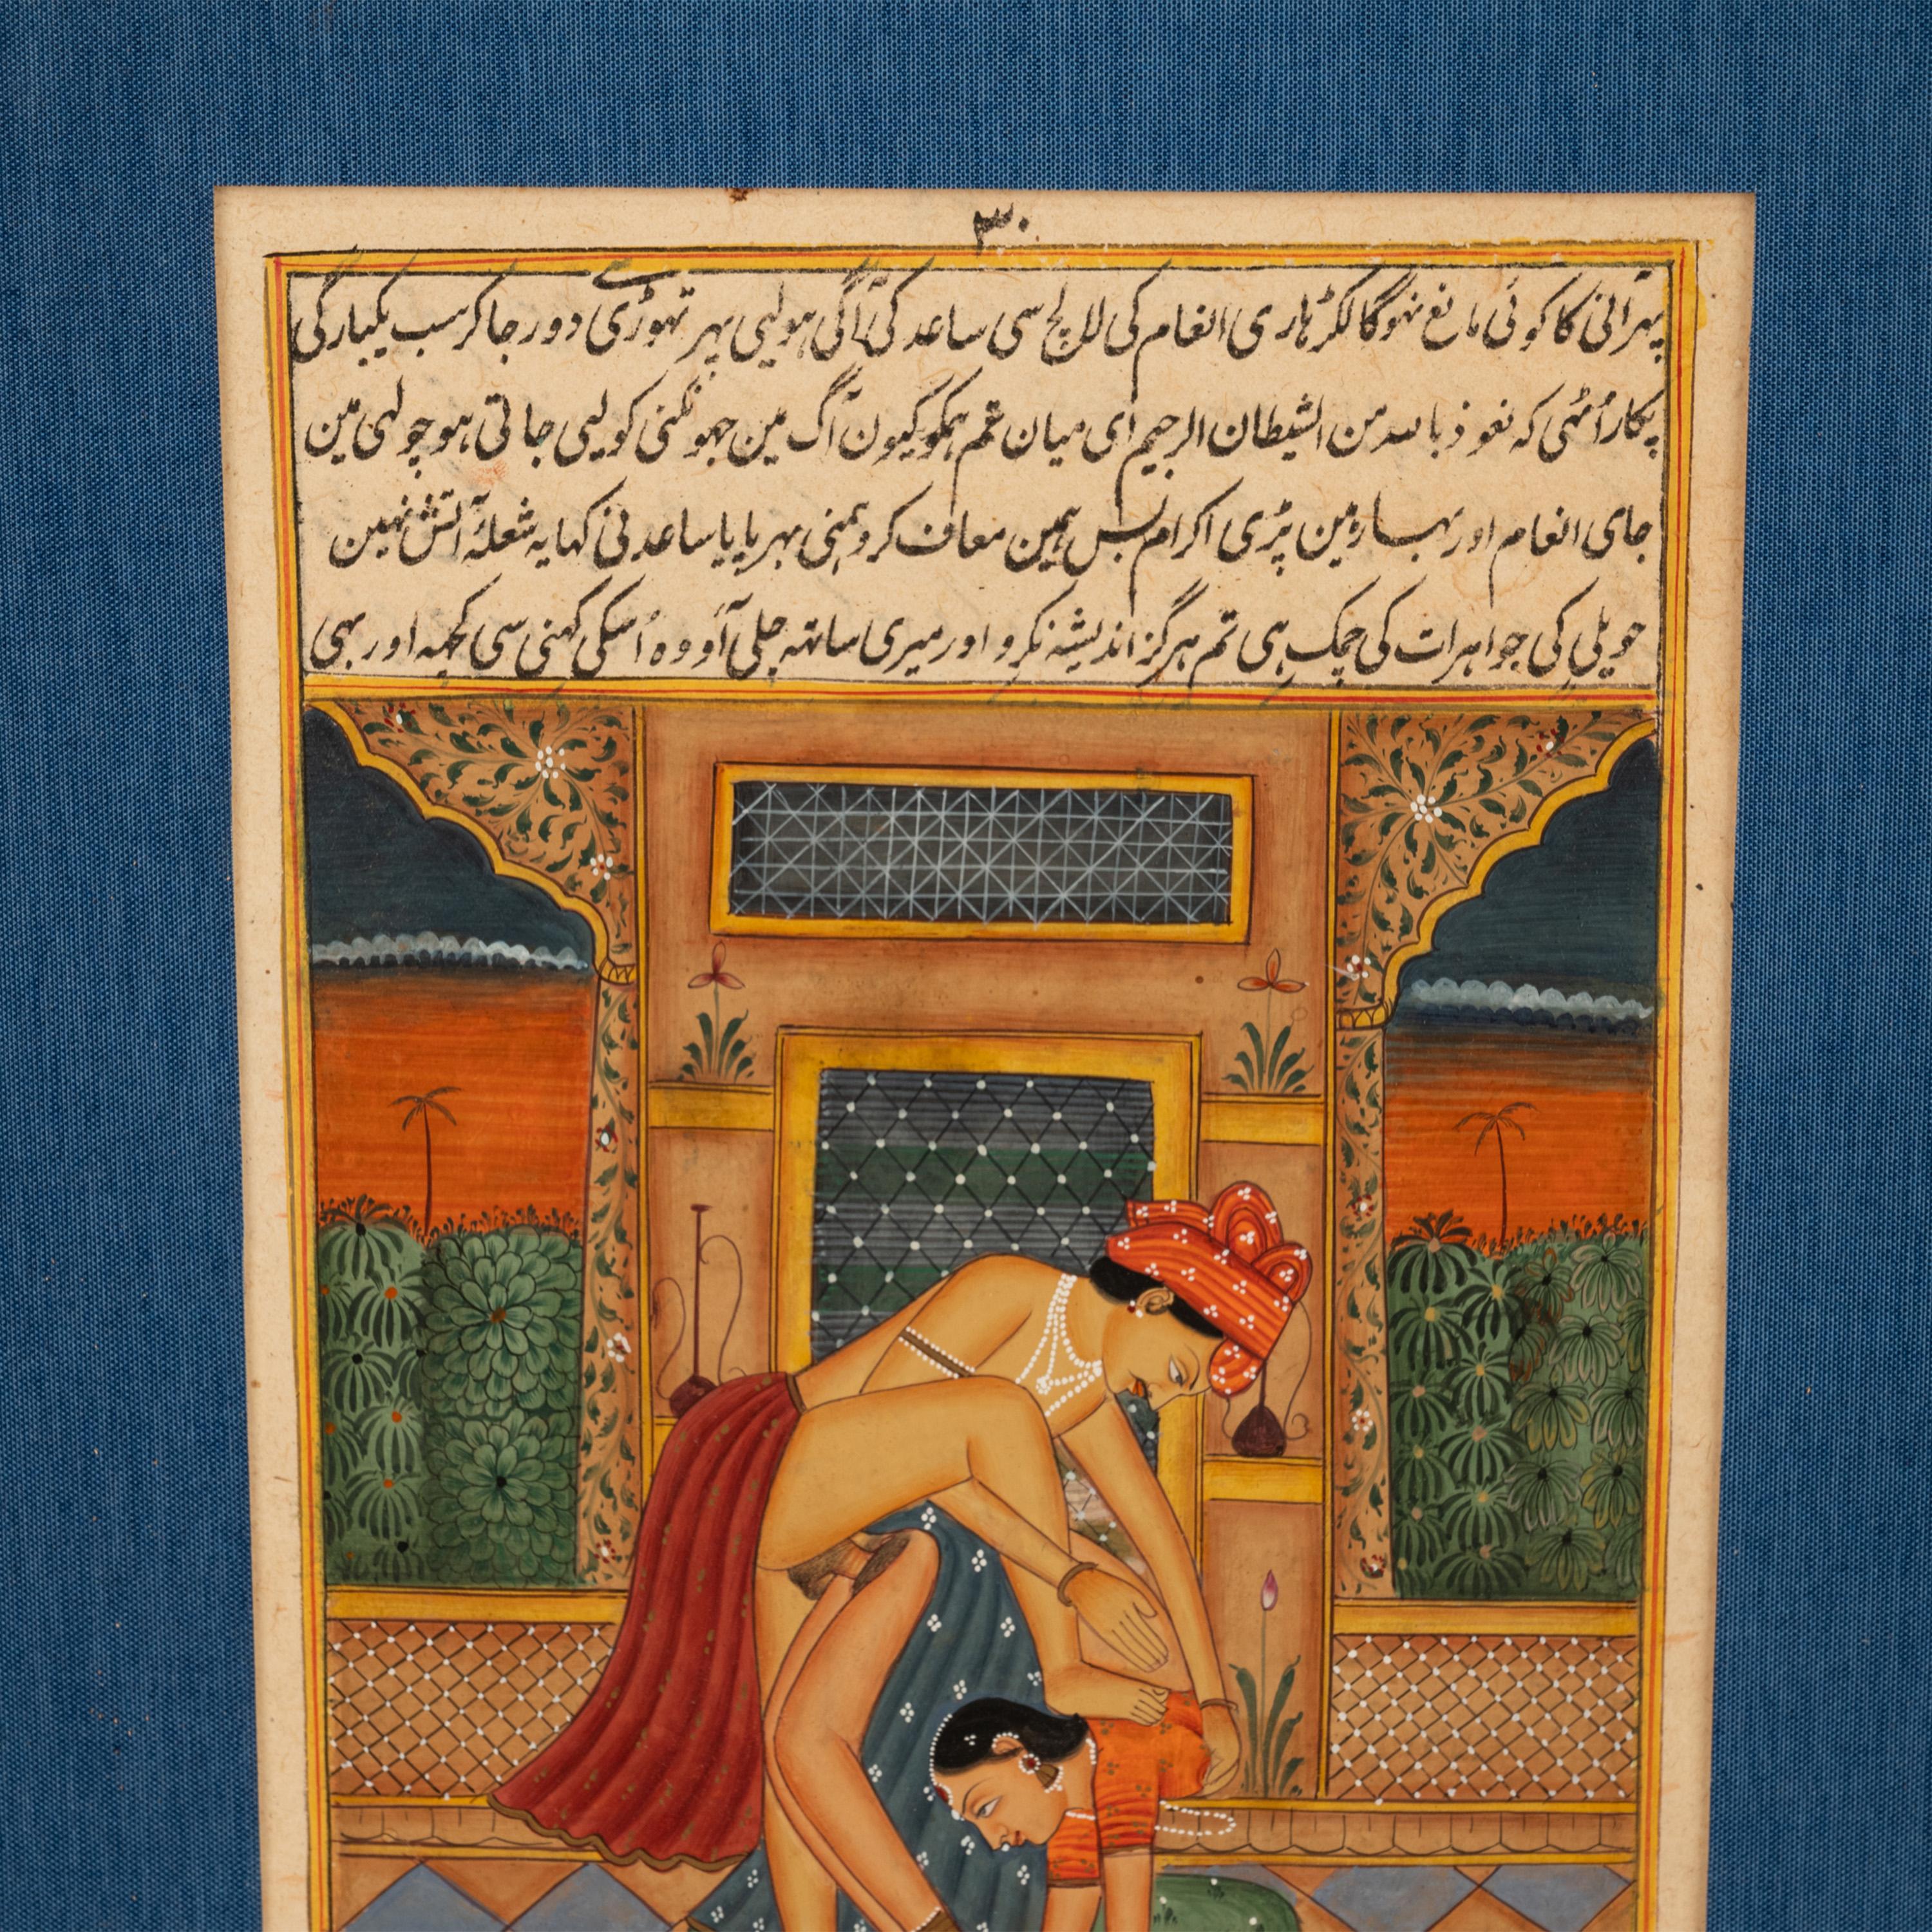 ۳۰
پہرآنی کا کوئی مانع نہوگا لکڑہاری انعام کی لالچ سی ساعد کی آگی ہولیی پہر تہوڑی دور جاکر سب یکبارگی
پکار اُٹہی کہ نعوذ باللہ من الشیطان الرجیم ای میان تم ہمکو کیون آگ مین جہونکنی کو لیی جاتی ہو چولہی مین
جای انعام اور بہاڑ مین پڑی اکرام بس ہمین معاف کرو ہمنی بہر پایا ساعد نی کہا یہ شعلۂ آتش نہین
حویلی کی جواہرات کی چمک ہی تم ہرگز اندیشہ نکرو اور میری ساتہہ چلی آو وہ اُسکی کہنی سی کچہہ اور بہی